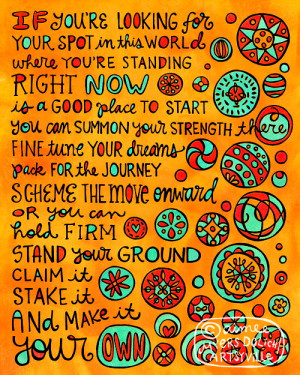 IF YOU'RE LOOKING for
YOUR SPOT in this WORLD
where YOU'RE STANDING
RIGHT NOW
is a GOOD place TO START
you can SUMMON your STRENGTH there
FINE TUNE YOUR dreams
pack FOR the JOURNEY
SCHEME THE MOVE onward
OR you can
hold FIRM
STAND your GROUND
CLAIM it
STAKE it
AND MAKE it
your OWN
© aimee
ARTSYVILLE